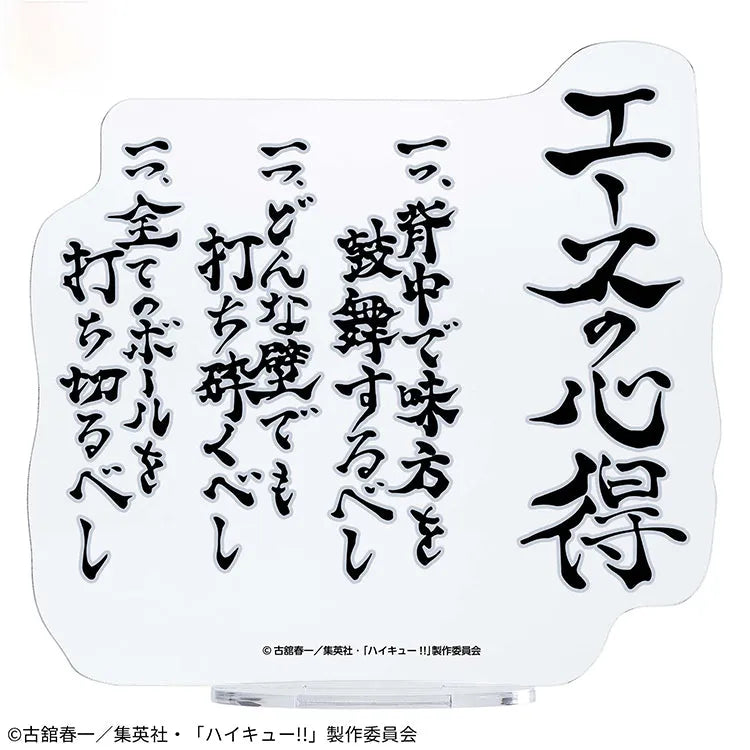 エースの心得
一つ、背中で味方を
鼓舞するべし
一つ、どんな壁でも
打ち砕くべし
一つ、全てのボールを
打ち切るべし
©古舘春一／集英社・「ハイキュー!!」製作委員会
©古舘春一／集英社・「ハイキュー!!」製作委員会